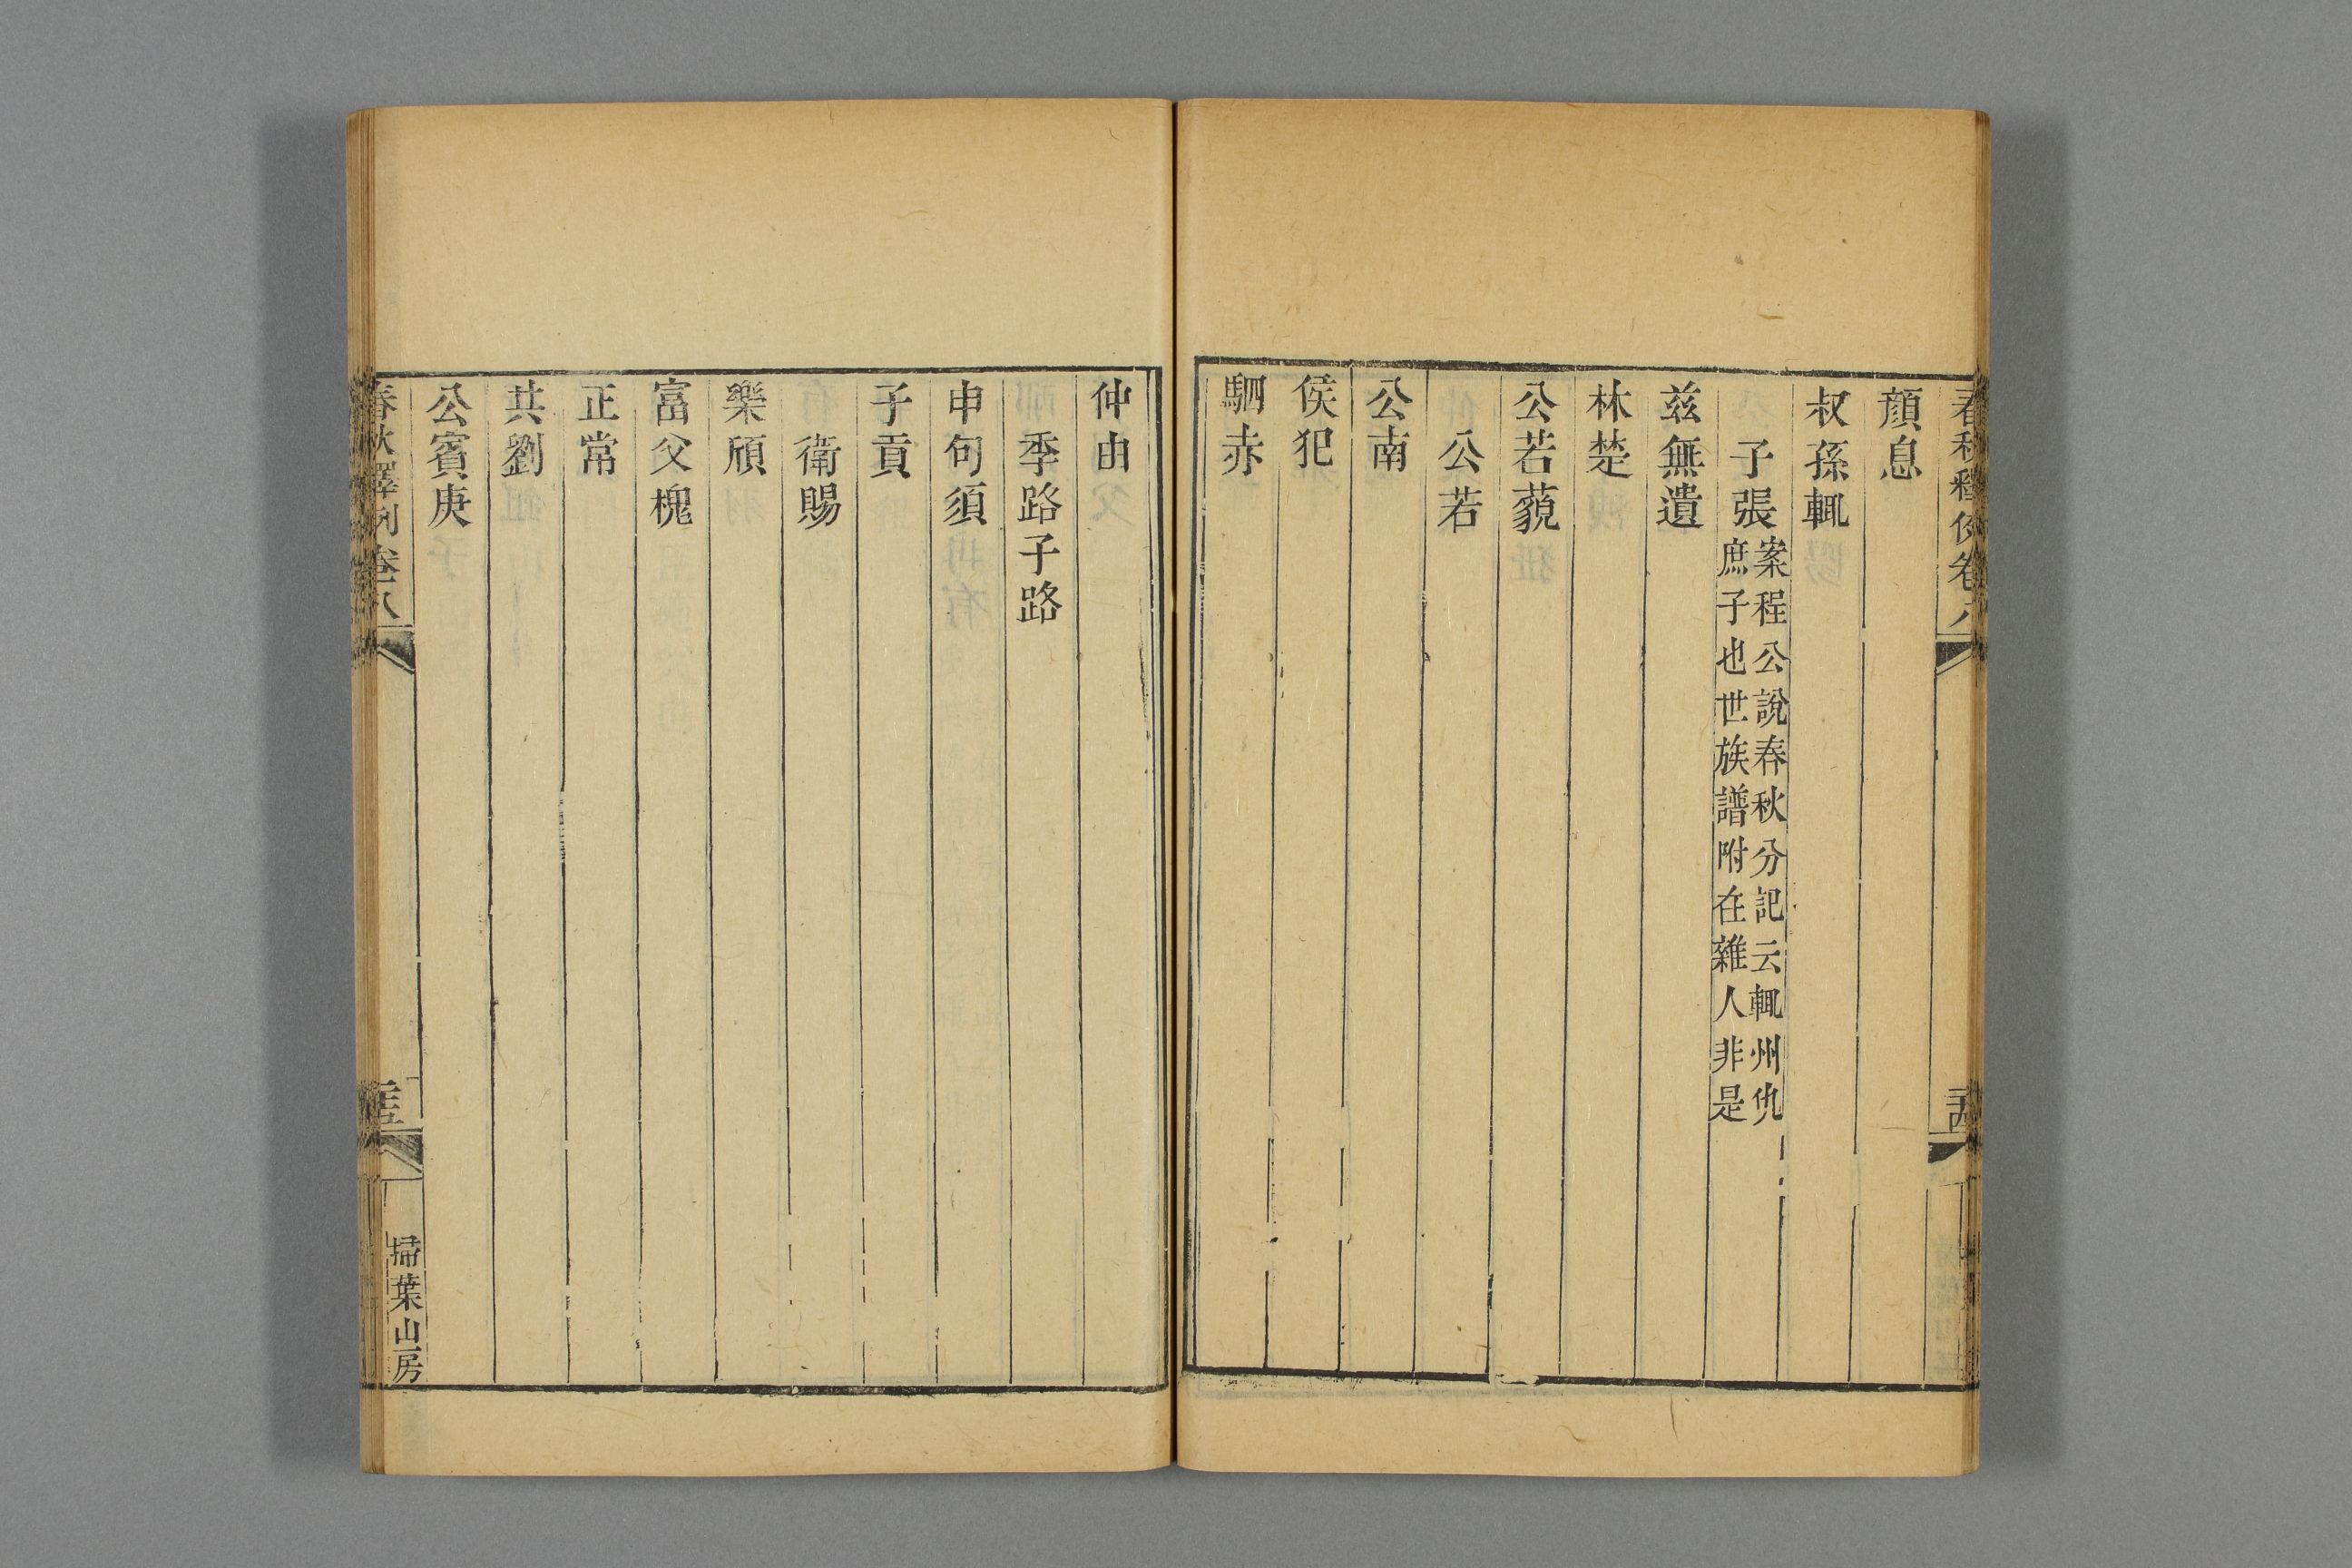 春秋釋例卷八
二十四
顏息
叔孫輒
子張案程公說春秋分記云輒州仇
庶子也世族譜附在雜人非是
兹無遺
林楚
公若藐
公若
公南
侯犯
駟赤
仲由
季路子路
申句須
子貢
衛賜
樂頎
富父槐
正常
共劉
公賓庚
春秋釋例卷八
二十五
掃葉山房